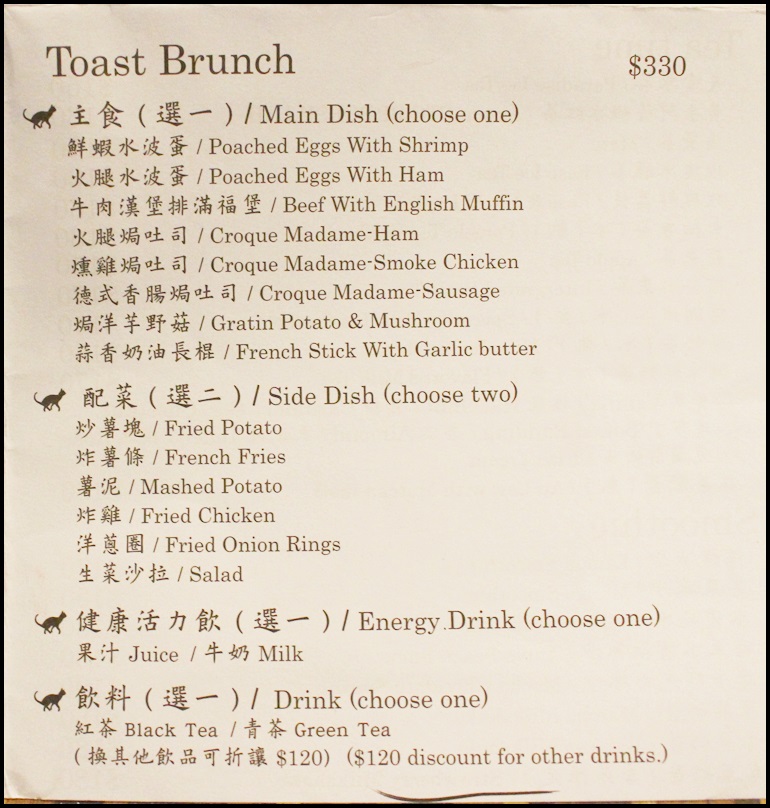 Toast Brunch $330
主食 ( 選一 ) / Main Dish (choose one)
鮮蝦水波蛋 / Poached Eggs With Shrimp
火腿水波蛋 / Poached Eggs With Ham
牛肉漢堡排滿福堡 / Beef With English Muffin
火腿焗吐司 / Croque Madame-Ham
燻雞焗吐司 / Croque Madame-Smoke Chicken
德式香腸焗吐司 / Croque Madame-Sausage
焗洋芋野菇 / Gratin Potato & Mushroom
蒜香奶油長棍 / French Stick With Garlic butter
配菜 ( 選二 ) / Side Dish (choose two)
炒薯塊 / Fried Potato
炸薯條 / French Fries
薯泥 / Mashed Potato
炸雞 / Fried Chicken
洋蔥圈 / Fried Onion Rings
生菜沙拉 / Salad
健康活力飲 ( 選一 ) / Energy.Drink (choose one)
果汁 Juice / 牛奶 Milk
飲料 ( 選一 ) / Drink (choose one)
紅茶 Black Tea / 青茶 Green Tea
( 換其他飲品可折讓 $120) ($120 discount for other drinks.)